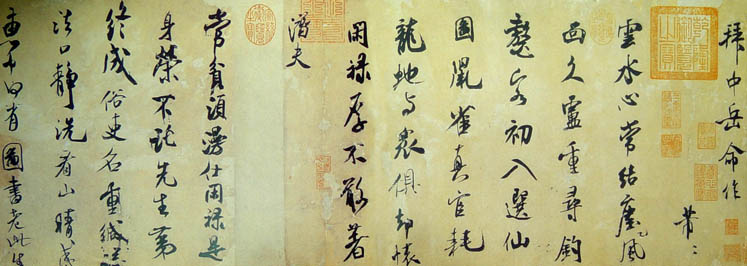 拜中岳命作
芾〻
雲水心常結塵風
面久盧重尋釣
鼇客初入選仙
圖鼠雀真官耗
龍蛇与眾俱却懷
閑祿厚不敢著
潛夫
常貧須漫仕閑祿是
身榮不託先生第
終成俗吏名重緘議
法口靜洗看山晴
圖書老此生